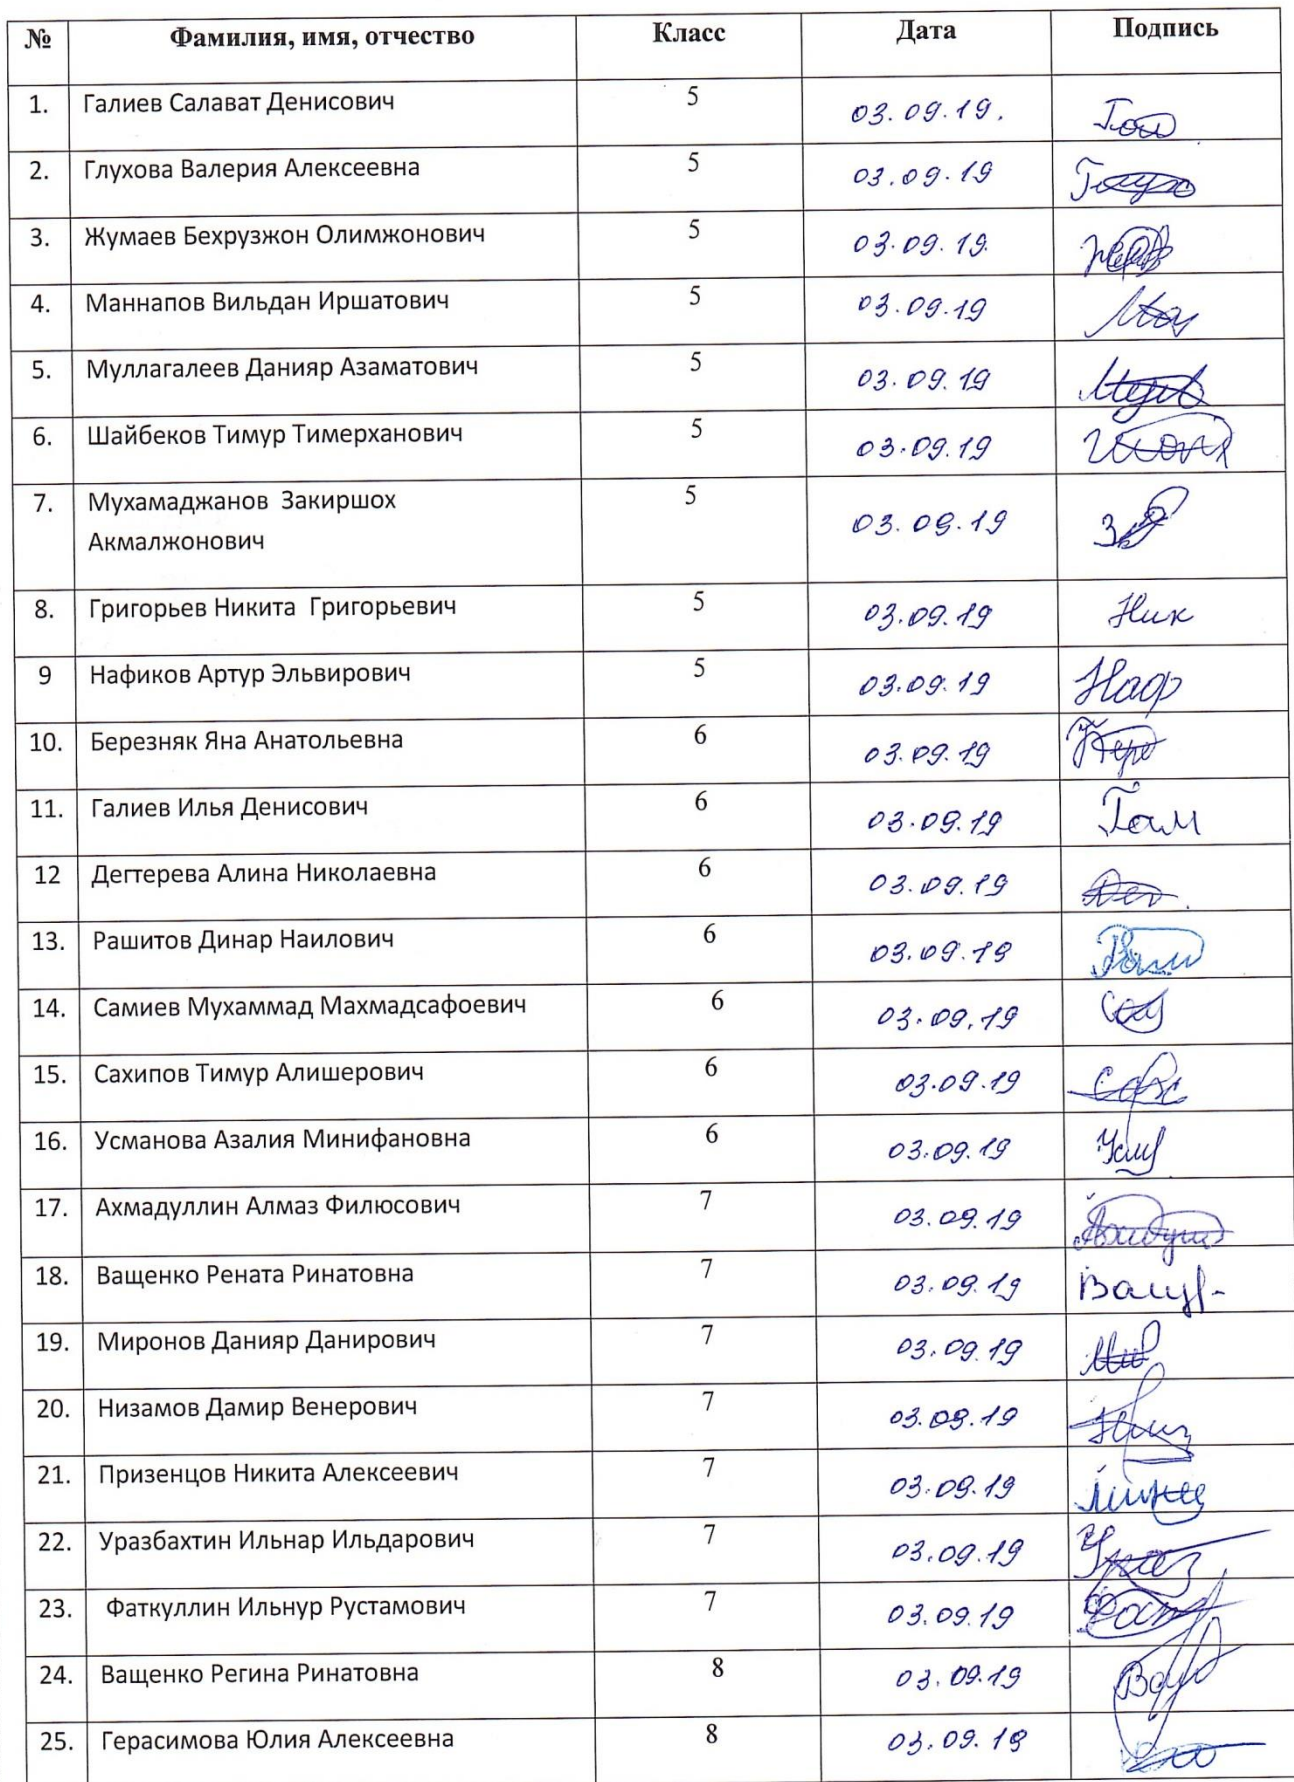 № Фамилия, имя, отчество Класс Дата Подпись
1. Галиев Салават Денисович 5 03.09.19.
2. Глухова Валерия Алексеевна 5 03.09.19
3. Жумаев Бехрузжон Олимжонович 5 03.09.19.
4. Маннапов Вильдан Иршатович 5 03.09.19
5. Муллагалеев Данияр Азаматович 5 03.09.19
6. Шайбеков Тимур Тимерханович 5 03.09.19
7. Мухамаджанов Закиршох 5 03.09.19
Акмалжонович
8. Григорьев Никита Григорьевич 5 03.09.19 Ник
9 Нафиков Артур Эльвирович 5 03.09.19 Наф
10. Березняк Яна Анатольевна 6 03.09.19
11. Галиев Илья Денисович 6 03.09.19 Гали
12 Дегтерева Алина Николаевна 6 03.09.19
13. Рашитов Динар Наилович 6 03.09.19
14. Самиев Мухаммад Махмадсафоевич 6 03.09.19
15. Сахипов Тимур Алишерович 6 03.09.19
16. Усманова Азалия Минифановна 6 03.09.19
17. Ахмадуллин Алмаз Филюсович 7 03.09.19
18. Ващенко Рената Ринатовна 7 03.09.19
19. Миронов Данияр Данирович 7 03.09.19
20. Низамов Дамир Венерович 7 03.09.19
21. Призенцов Никита Алексеевич 7 03.09.19
22. Уразбахтин Ильнар Ильдарович 7 03.09.19
23. Фаткуллин Ильнур Рустамович 7 03.09.19
24. Ващенко Регина Ринатовна 8 03.09.19
25. Герасимова Юлия Алексеевна 8 03.09.19